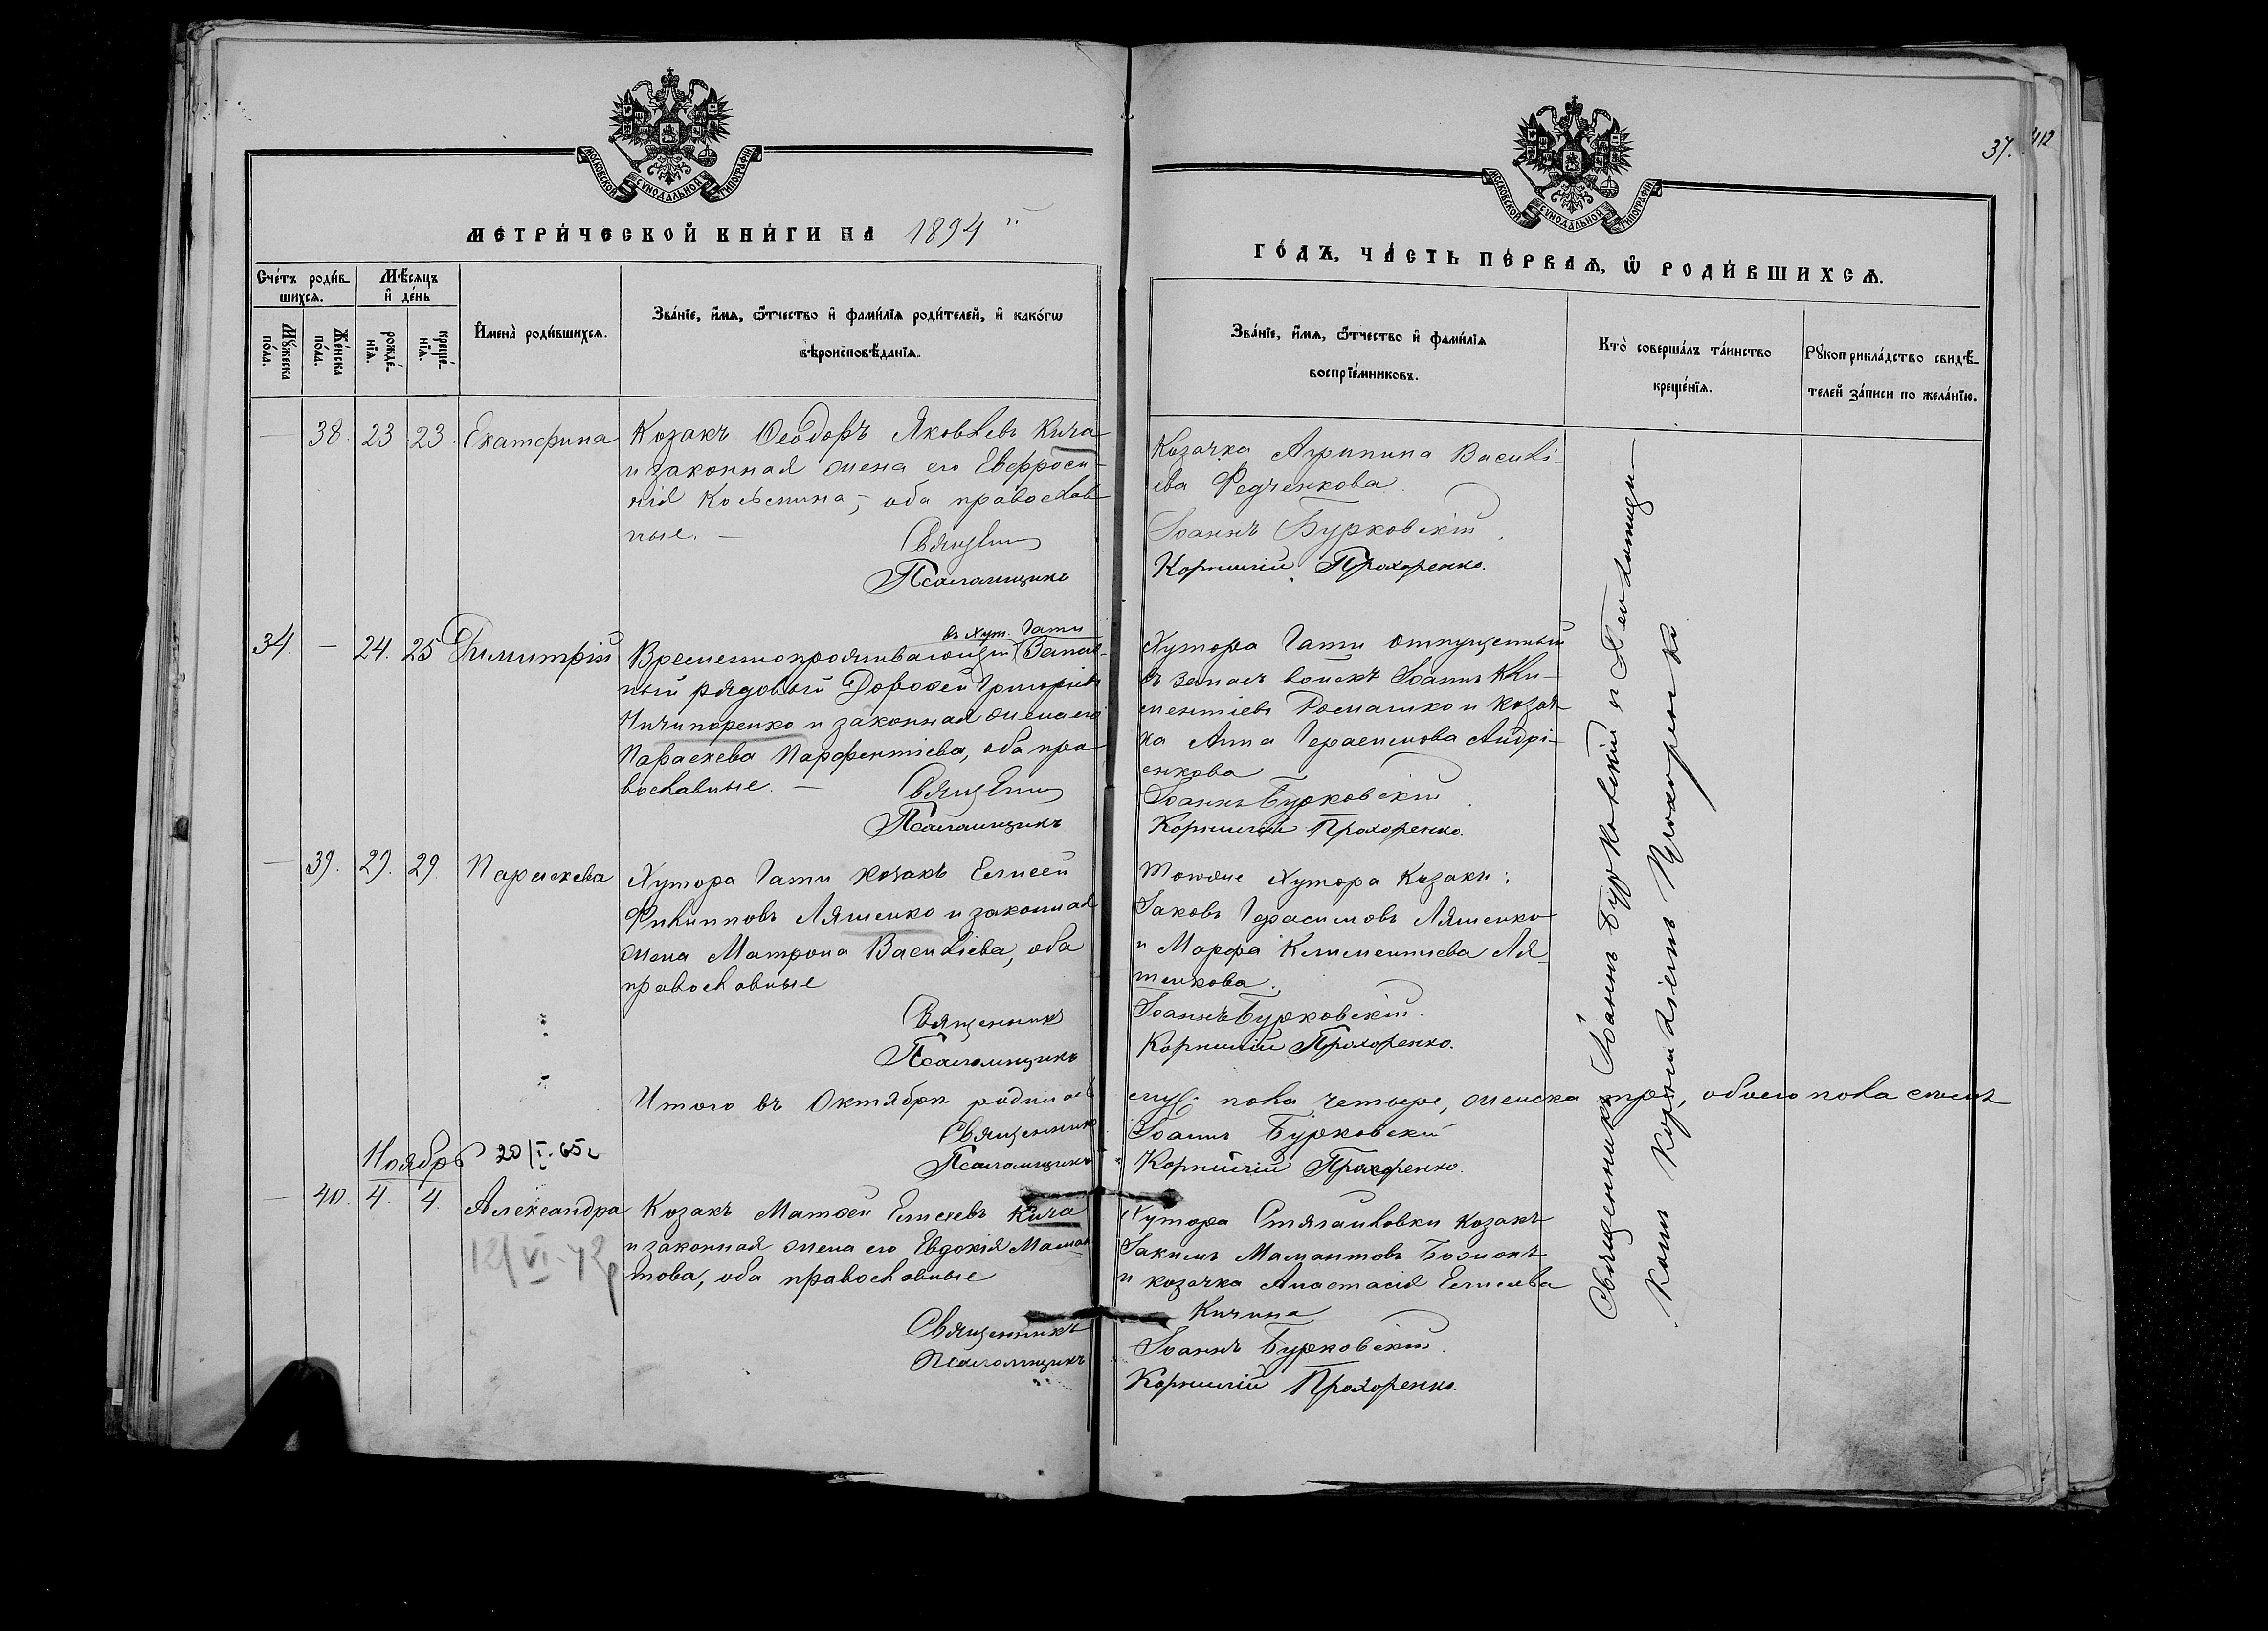 37. 412
МОСКОВСКОЙ СУНОДАЛЬНОЙ ТИПОГРАФІИ
МОСКОВСКОЙ СУНОДАЛЬНОЙ ТИПОГРАФІИ
МЕТРИ́ЧЕСКОЙ КНИ́ГИ НА 1894
ГО́ДЪ, ЧА́СТЬ ПЕ́РВАѦ, Ѡ РОДИ́ВШИХСѦ.
Сче́тъ роди́в-
шихсѧ.
Мꙋ́жеска
по́ла.
Же́нска
по́ла.
Мѣ́сѧцъ
и҆ де́нь
рожде́-
нїѧ.
креще́-
нїѧ.
И҆мена̀ роди́вшихсѧ.
Зва́нїе, и҆́мѧ, ѻ҆́тчество и҆ фами́лїѧ роди́телей, и҆ како́гѡ
вѣроисповѣ́данїѧ.
Зва́нїе, и҆́мѧ, ѻ҆́тчество и҆ фами́лїѧ
воспрїе́мниковъ.
Кто̀ соверша́лъ та́инство
креще́нїѧ.
Рꙋкоприкла́дство свидѣ́-
телей за́писи по жела́нїю.
— 38. 23 23. Екатерина
Козакъ Ѳеодоръ Яковлевъ Кича
и законная жена его Евфроси-
нія Косьмина, оба православ-
ные. —
Священ
Псаломщикъ
Козачка Агрипина Василі-
ева Редченкова.
Іоаннъ Бурковскій.
Корнилій Прохоренко.
34. — 24. 25 Димитрій
въ хут. Гати
Временнопроживающій Запас-
ный рядовый Дороѳей Григорьевъ
Ничипоренко и законная жена его
Параскева Парфентіева, оба пра
вославные. —
Священ
Псаломщикъ
Хутора Гати отпущенный
въ запасъ войскъ Іоаннъ Кли-
ментіевъ Ромашко и козач-
ка Анна Герасимова Андрі-
енкова
Іоаннъ Бурковскій.
Корнилій Прохоренко.
— 39. 29. 29. Параскева
Хутора Гати козакъ Елисей
Филипповъ Ляшенко и законная
жена Матрона Василіева, оба
православные
Священникъ
Псаломщикъ
Тогоже хутора козаки:
Іаковъ Герасимовъ Ляшенко
и Марфа Климентиева Ля-
шенкова.
Іоаннъ Бурковскій.
Корнилій Прохоренко.
Итого въ Октябрѣ родилось муж. пола четыре, женска три, обоего пола семь
Священникъ Іоаннъ Бурковскій
Псаломщикъ Корнилій Прохоренко.
Ноябрь 20/I-65г
— 40. 4. 4. Александра
12/VI-72р
Козакъ Матѳей Елисеевъ Кича
и законная жена его Евдокія Маман
това, оба православные
Священникъ
Псаломщикъ
Хутора Стягайловки козакъ
Іакимъ Мамантовъ Божокъ
и козачка Анастасія Елисеева
Кичина
Іоаннъ Бурковскій.
Корнилій Прохоренко.
Священникъ Іоаннъ Бурковскій и Псаломщи-
комъ Корниліемъ Прохоренко